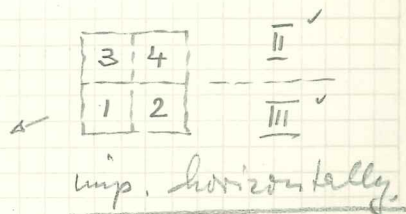 3 4 II ✓
1 2 III ✓
imp. horizontally.